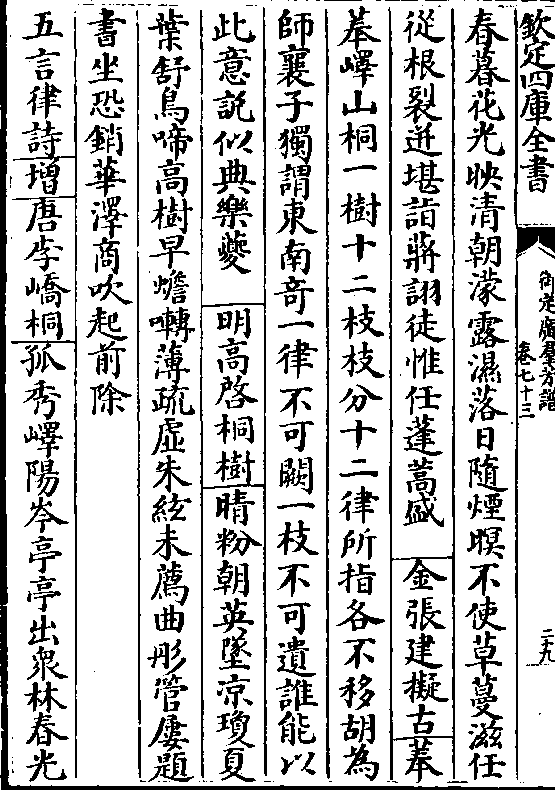 欽定四庫全書
御定廣羣芳譜
卷七十三
二十九
春暮花光映清朝濛露濕落日隨煙暝不使草蔓滋任
從根裂迸堪詣蔣詡徒惟任蓬蒿盛 金張建擬古菶
菶嶧山桐一樹十二枝枝分十二律所指各不移胡為
師襄子獨謂東南奇一律不可闕一枝不可遺誰能以
此意說似典樂夔 明高啓桐樹晴粉朝英墜凉瓊夏
葉舒鳥啼高樹早蟾囀薄疏虛朱絃未薦曲彤管屢題
書坐恐銷華澤商吹起前除
五言律詩增唐李嶠桐孤秀嶧陽岑亭亭出衆林春光